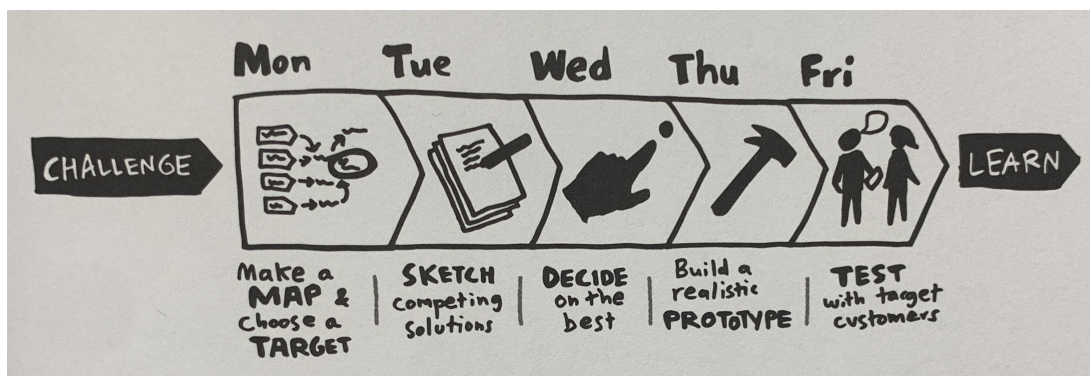 Mon Tue Wed Thu Fri
CHALLENGE
LEARN
Make a
MAP &
choose a
TARGET
SKETCH
competing
solutions
DECIDE
on the
best
Build a
realistic
PROTOTYPE
TEST
with target
customers